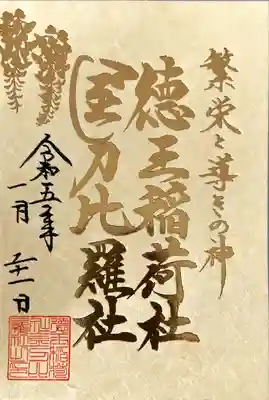 繁栄と導きの神
徳王稲荷社
金刀比羅社
令和五年
一月二十一日